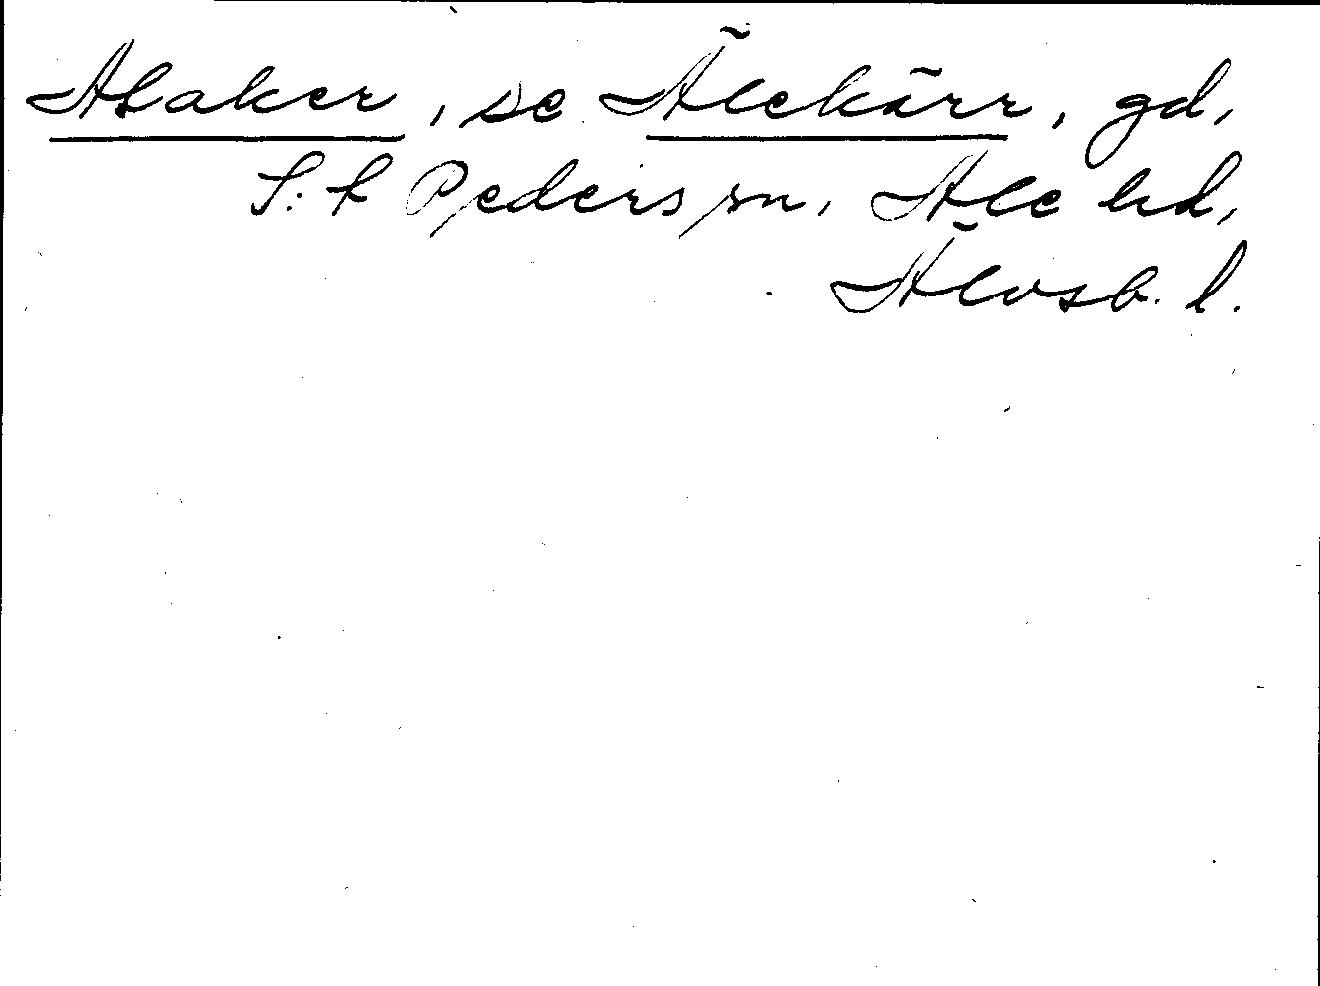 Alaker, se Älekärr, gd,
S:t Peders sn, Ale hd,
Älvsb. l.